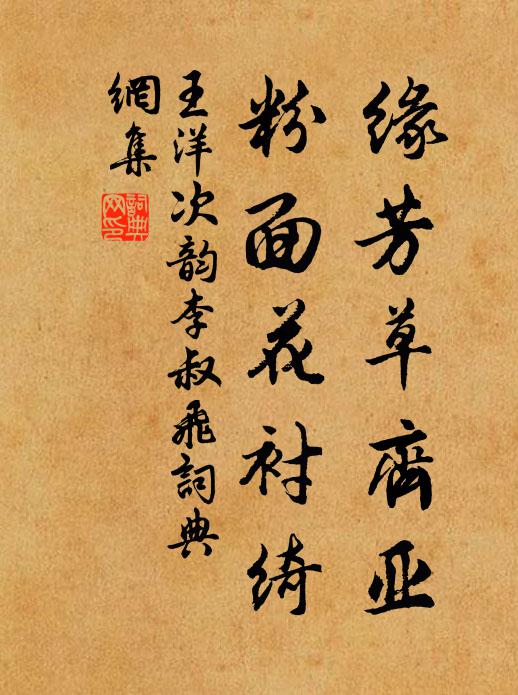 缘芳草齊亚
粉面花衬绮
王洋次韵李叔飛詞典
網集
詞典网印